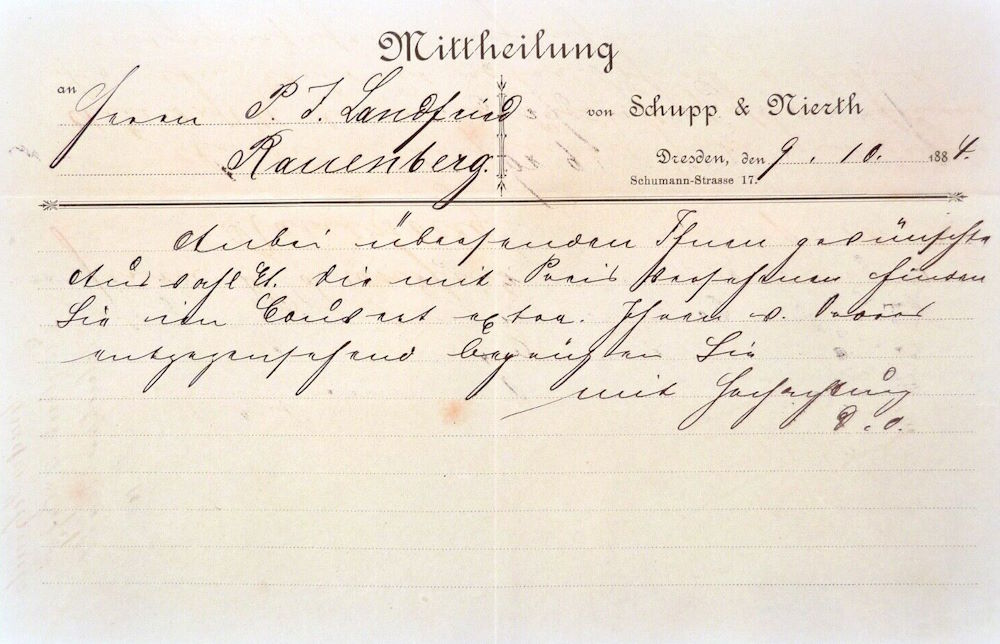 Mittheilung
an Herrn P. J. Landfried von Schupp & Nierth
Rauenberg. Dresden, den 9. 10. 1884.
Schumann-Strasse 17.
Anbei übersenden Ihnen gewünschte
Auswahl Et. die mit Preis versehenen finden
Sie im Couvert extra. Ihren w. Ordres
entgegensehend begrüßen Sie
mit Hochachtung
D. O.